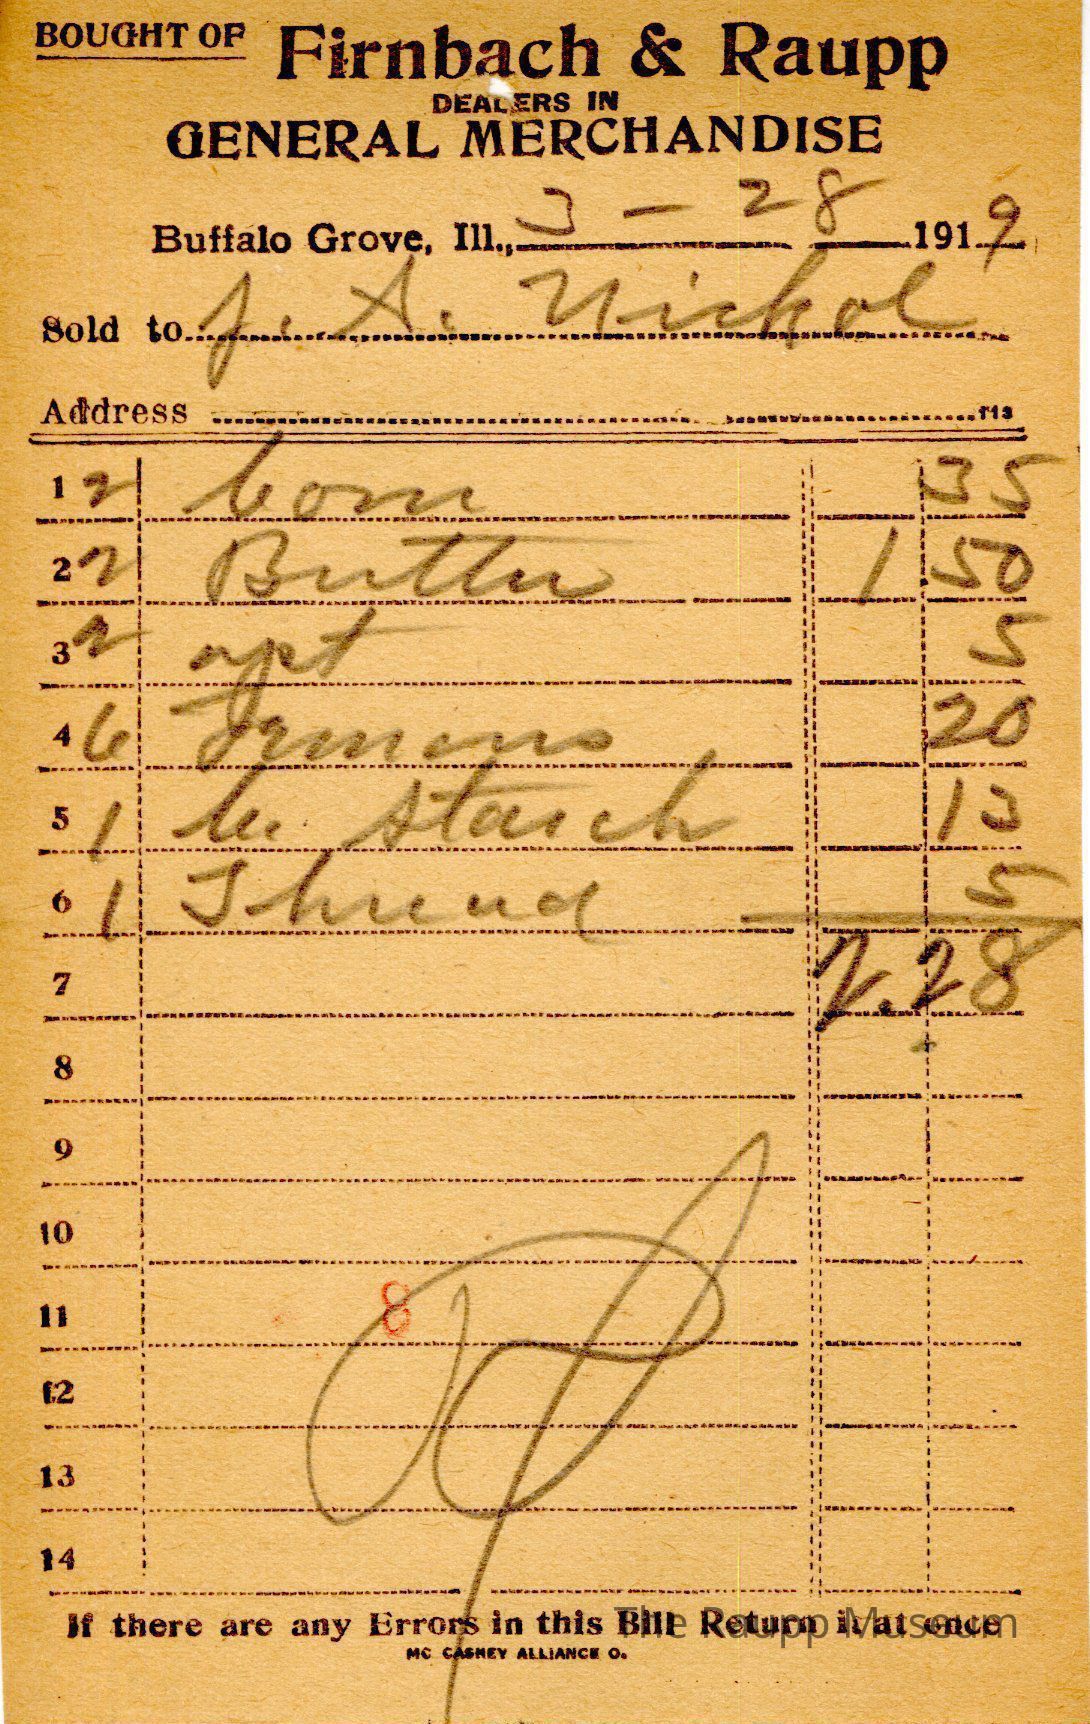 BOUGHT OF Firnbach & Raupp
DEALERS IN
GENERAL MERCHANDISE
Buffalo Grove, Ill., 3 - 28 1919
Sold to J. A. Nickol
Address F13
1 2 Corn 35
2 2 Butter 1 50
3 2 5
4 6 20
5 1 C. Starch 13
6 1 Thread 5
7 2.28
8
9
10
11 8
12
13
14
If there are any Errors in this Bill Return it at once
The Raupp Museum
MC CASKEY ALLIANCE O.